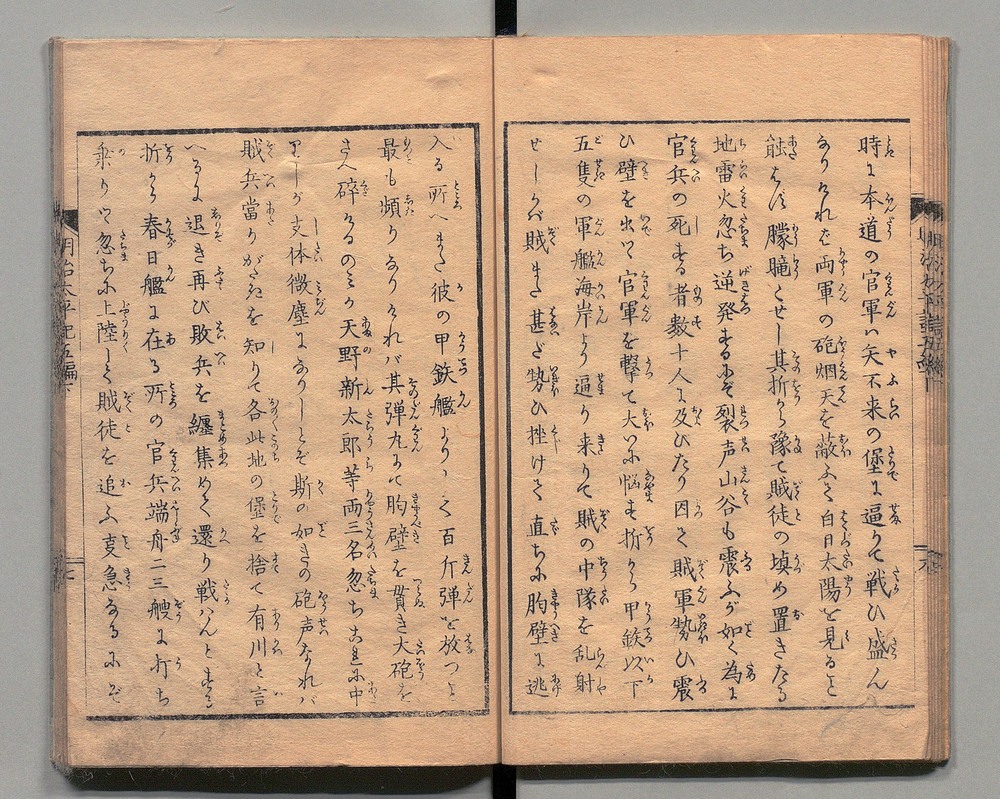 時に本道の官軍ハ矢不来の堡に逼りて戦ひ盛ん
なりけれを両軍の砲烟天を蔽ふて白日太陽を見ること
能はす朦朧とせし其折から豫て賊徒の填め置きたる
地雷火忽ち逆発するにそ裂声山谷も震ふが如く為に
官兵の死する者数十人に及びたり因て賊軍勢ひ震
ひ壁を出て官軍を撃て大ひに悩ます折から甲鉄以下
五隻の軍艦海岸より逼り来りて賊の中隊を乱射
せしかバ賊また甚だ勢ひ挫けて直ちに胸壁に逃
入る所へまた彼の甲鉄艦より
百斤弾を放つこと
最も頻りなりけれバ其弾丸にて胸壁を貫き大砲を
さへ砕くるのミか天野新太郎等両三名忽ち
中
りしが支体微塵になりしとぞ斯の如きの砲声なれバ
賊兵當りがたきを知りて各此地の堡を捨て有川と言
へるに退き再び敗兵を纏集めて還り戦ハんとする
折から春日艦に在る所の官兵端舟二三艘に打ち
乗りて忽ちに上陸して賊徒を追ふ事急なるにぞ
明治太平記五編下